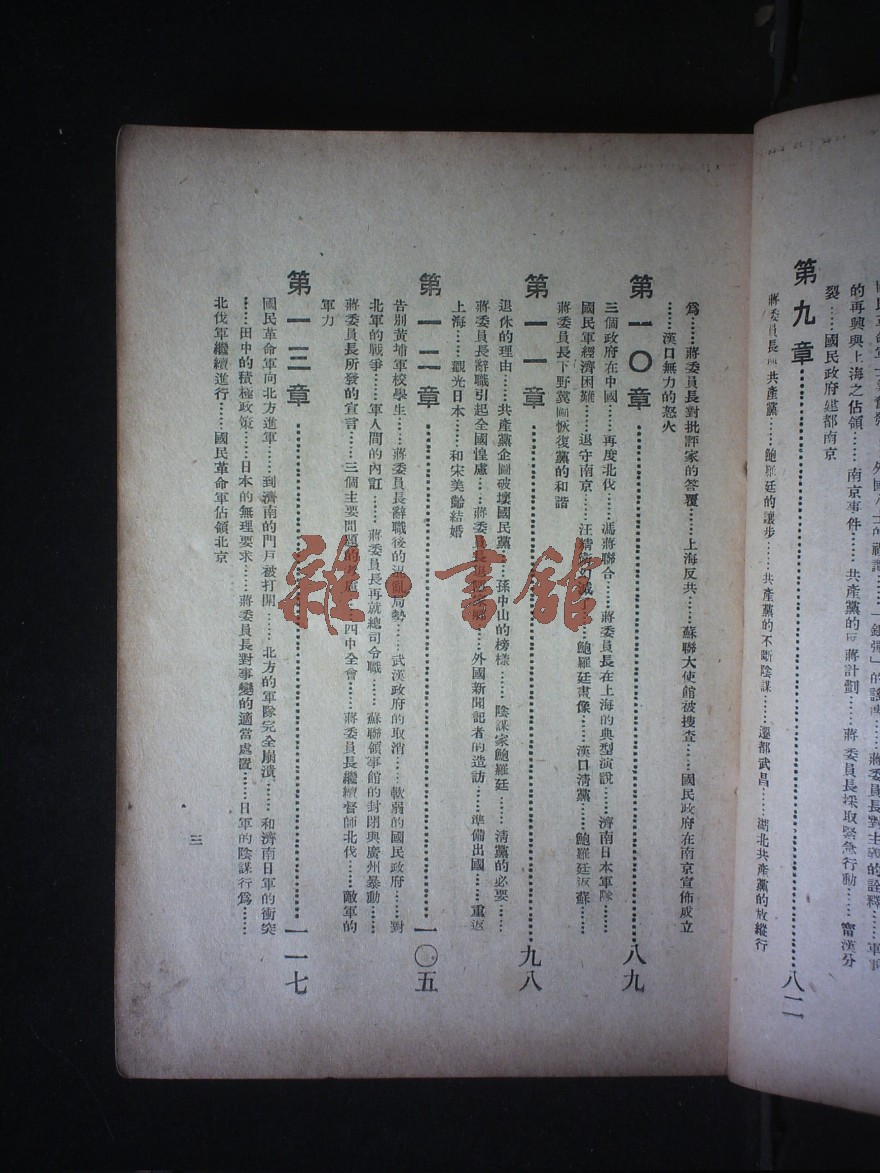 的再興與上海之佔領……南京事件……共產黨的反蔣計劃……蔣委員長採取緊急行動……甯漢分
裂……國民政府建都南京
第九章……八二
共產黨……鮑羅廷的讓步……共產黨的不斷陰謀……遷都武昌……湖北共產黨的放縱行
爲……蔣委員長對批評家的答覆……上海反共……蘇聯大使館被搜查……國民政府在南京宣佈成立
……漢口無力的怒火
第一〇章……八九
三個政府在中國……再度北伐……馮蔣聯合……蔣委員長在上海的典型演說……濟南日本軍隊……
國民軍經濟困難……退守南京……汪精衛幻滅了……鮑羅廷畫像……漢口清黨……鮑羅廷返蘇……
蔣委員長下野冀圖恢復黨的和諧
第一一章……九八
退休的理由……共產黨企圖破壞國民黨……孫中山的榜樣……陰謀家鮑羅廷……清黨的必要……
蔣委員長辭職引起全國惶慮……蔣委員長退……外國新聞記者的造訪……準備出國……重返
上海……觀光日本……和宋美齡結婚
第一二章……一〇五
告別黃埔軍校學生……蔣委員長辭職後的混亂局勢……武漢政府的取消……軟弱的國民政府……對
北軍的戰爭……軍人間的內訌……蔣委員長再就總司令職……蘇聯領事館的封閉與廣州暴動……
蔣委員長所發的宣言……三個主要問題的考慮……四中全會……蔣委員長繼續督師北伐……敵軍的
軍力
第一三章……一一七
國民革命軍向北方進軍……到濟南的門戶被打開……北方的軍隊完全崩潰……和濟南日軍的衝突
……田中的積極政策……日本的無理要求……蔣委員長對事變的適當處置……日軍的陰謀行爲……
北伐軍繼續進行……國民革命軍佔領北京
三
雜·書館